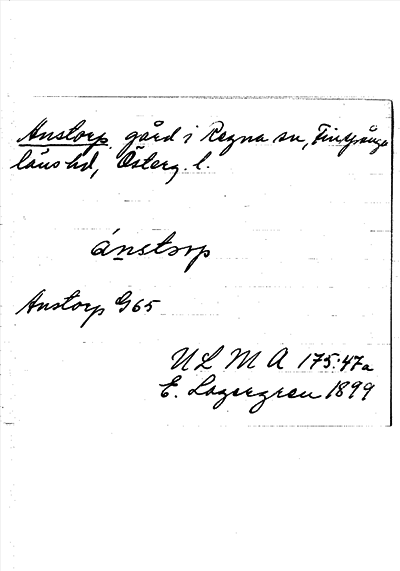 Anstorp gård i Regna sn, Finspånga
läns hd, Österg. l.
ánstorp
Anstorp G65
ULMA 175:47a
E. Lagergren 1899